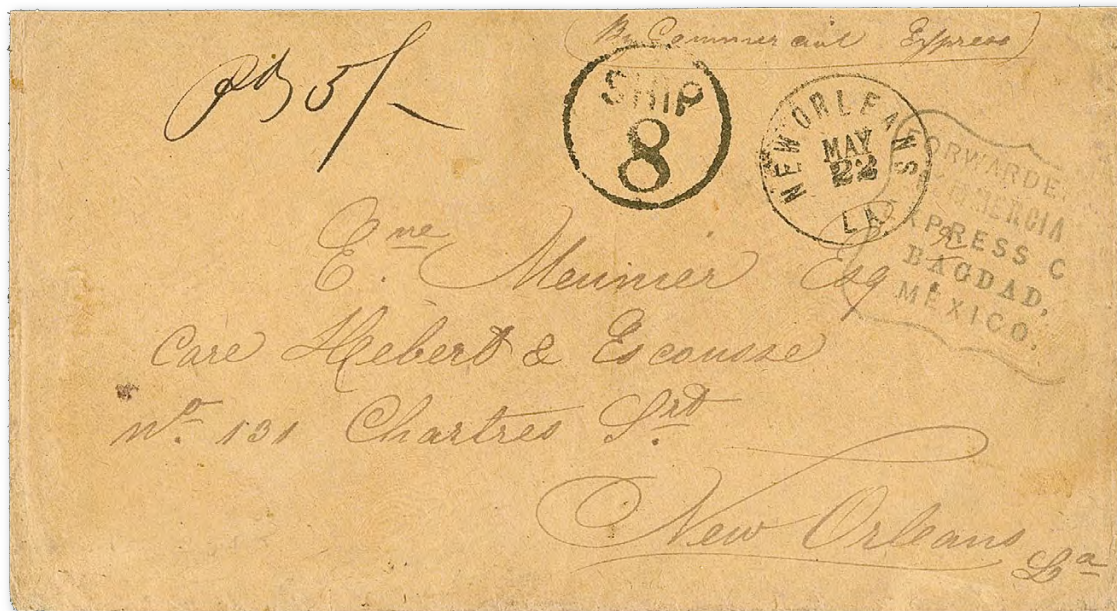 (By Commercial Express)
pd 5/-
SHIP
8
NEW ORLEANS
MAY
22
LA
FORWARDE
COMMERCIA
EXPRESS C
BAGDAD,
MEXICO.
E.ne Meunier Esqr
Care Hebert & Escousse
No. 131 Chartres Srt
New Orleans
La